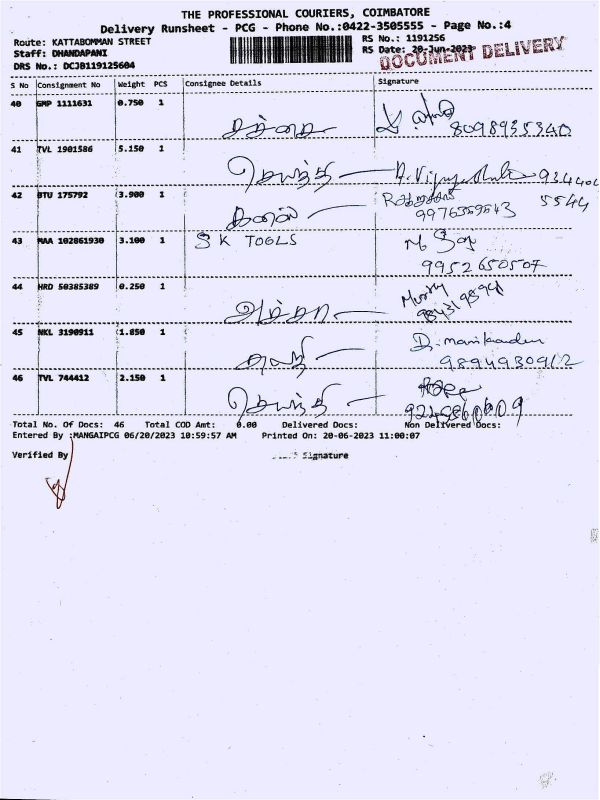 THE PROFESSIONAL COURIERS, COIMBATORE
Delivery Runsheet - PCG - Phone No.:0422-3505555 - Page No.:4
Route: KATTABOMMAN STREET
RS No.: 1191256
Staff: DHANDAPANI
RS Date: 20-Jun-2023
DOCUMENT DELIVERY
DRS No.: DCJB119125604
S No Consignment No Weight PCS Consignee Details Signature
40 GMP 1111631 0.750 1
8098935340
41 TVL 1901586 5.150 1 ஜெயந்தி
42 BTU 175792 3.900 1
5544
43 MAA 102861930 3.100 1 S K TOOLS
9952650507
44 HRD 50385389 0.250 1
Murthy
45 NKL 3190911 1.850 1
D. Manikandan
9894930912
46 TVL 744412 2.150 1 ஜெயந்தி
Total No. Of Docs: 46 Total COD Amt: 0.00 Delivered Docs: Non Delivered Docs:
Entered By :MANGAIPCG 06/20/2023 10:59:57 AM Printed On: 20-06-2023 11:00:07
Verified By Signature